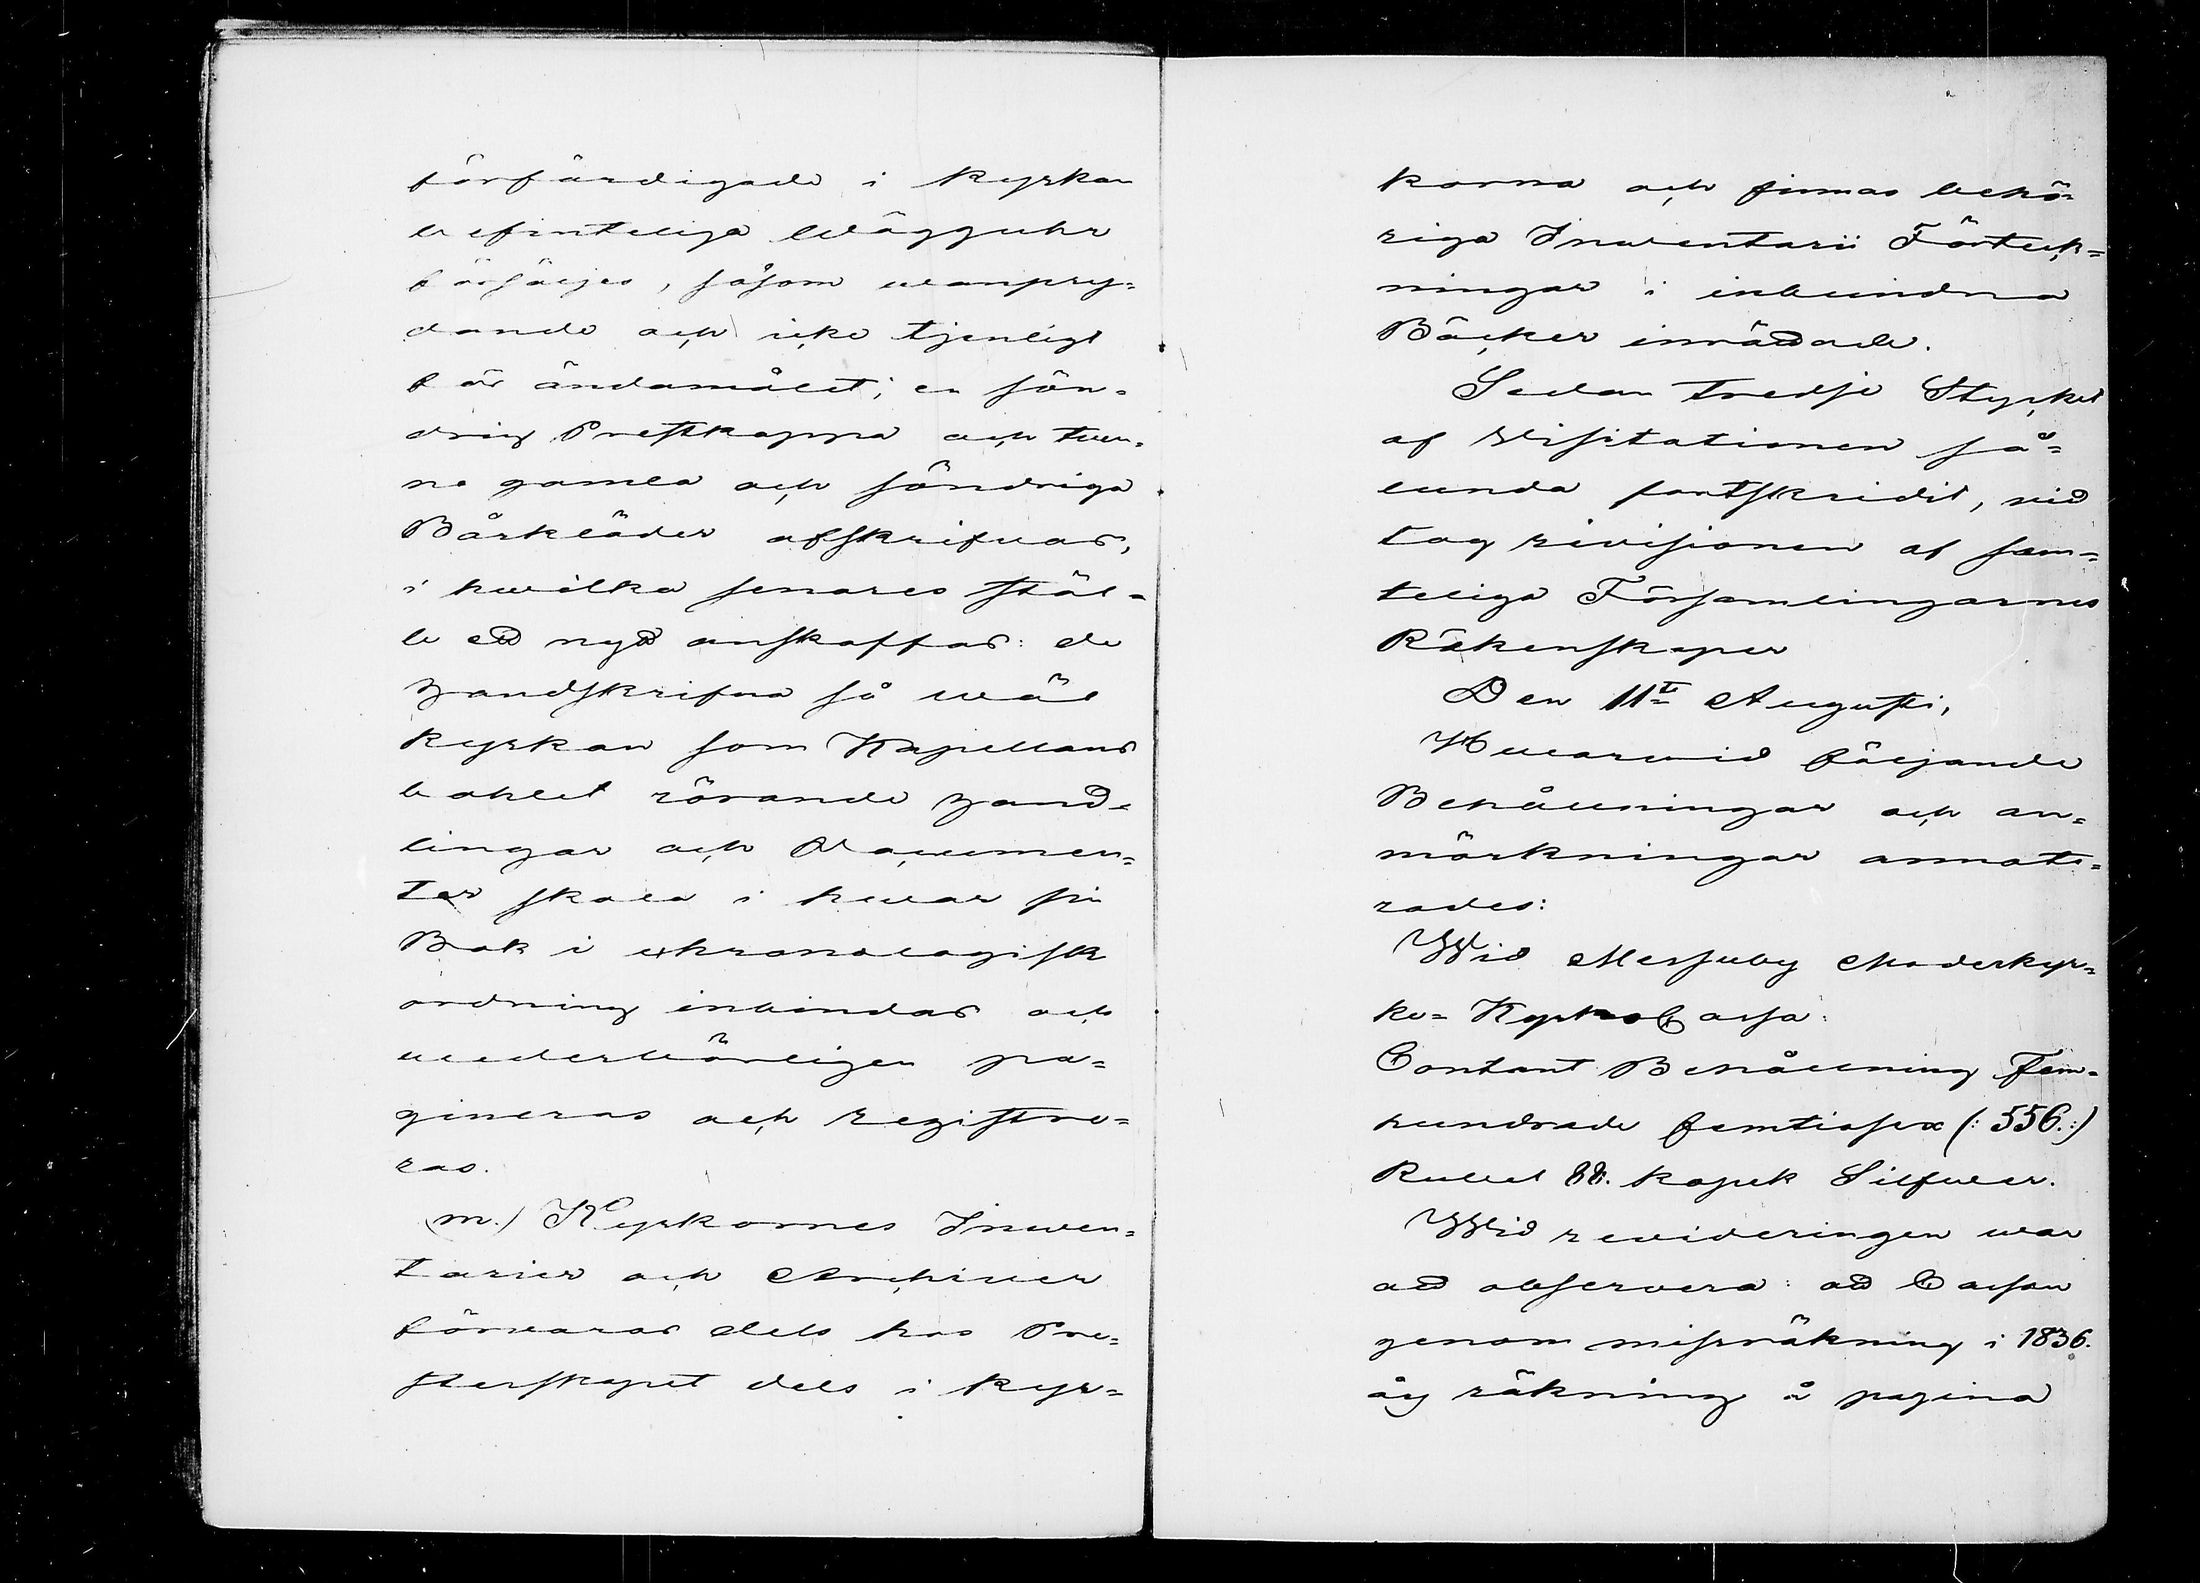 förfärdigade i kyrkan
befinteliga Wägguhr
försäljes, såsom wanpry=
dande och icke tjenligt
för ändamålet; en sön=
drig Prestkappa och twen=
ne gamla och söndriga
Bårkläder afskrifwas,
i hwilka senares stäl=
le ett nytt anskaffas: de
handskrifna så wäl
kyrkan som Kapellans
bohlet rörande hand=
lingar och Documen=
ter skola i hwar sin
Bok i chronologisk
ordning inbindas och
wederbörligen pa=
gineras och registre=
ras.
m.) Kyrkornes Inwen=
tarier och Archiver
förwaras dels hos Pre=
sterskapet dels i kyr=
korna och finnas behö=
riga Inwentarii Förteck=
ningar i inbundna
Böcker inrättade.
Sedan tredje Stycket
af Visitationen så=
lunda fortskridit, vid
tog revisionen af sam=
teliga Församlingarnes
Räkenskaper
Den 11te Augusti,
Hwarwid följande
Behållningar och an=
märkningar annote=
rades:
Wid Messuby Moderkyr=
ko= Kyrko Cassa:
Contant Behållning Fem=
hundrade femtiosex (: 556.:)
Rubel 88. kopek Silfwer.
Wid revideringen war
att observera: att Cassan
genom missräkning i 1836.
års räkning å pagina